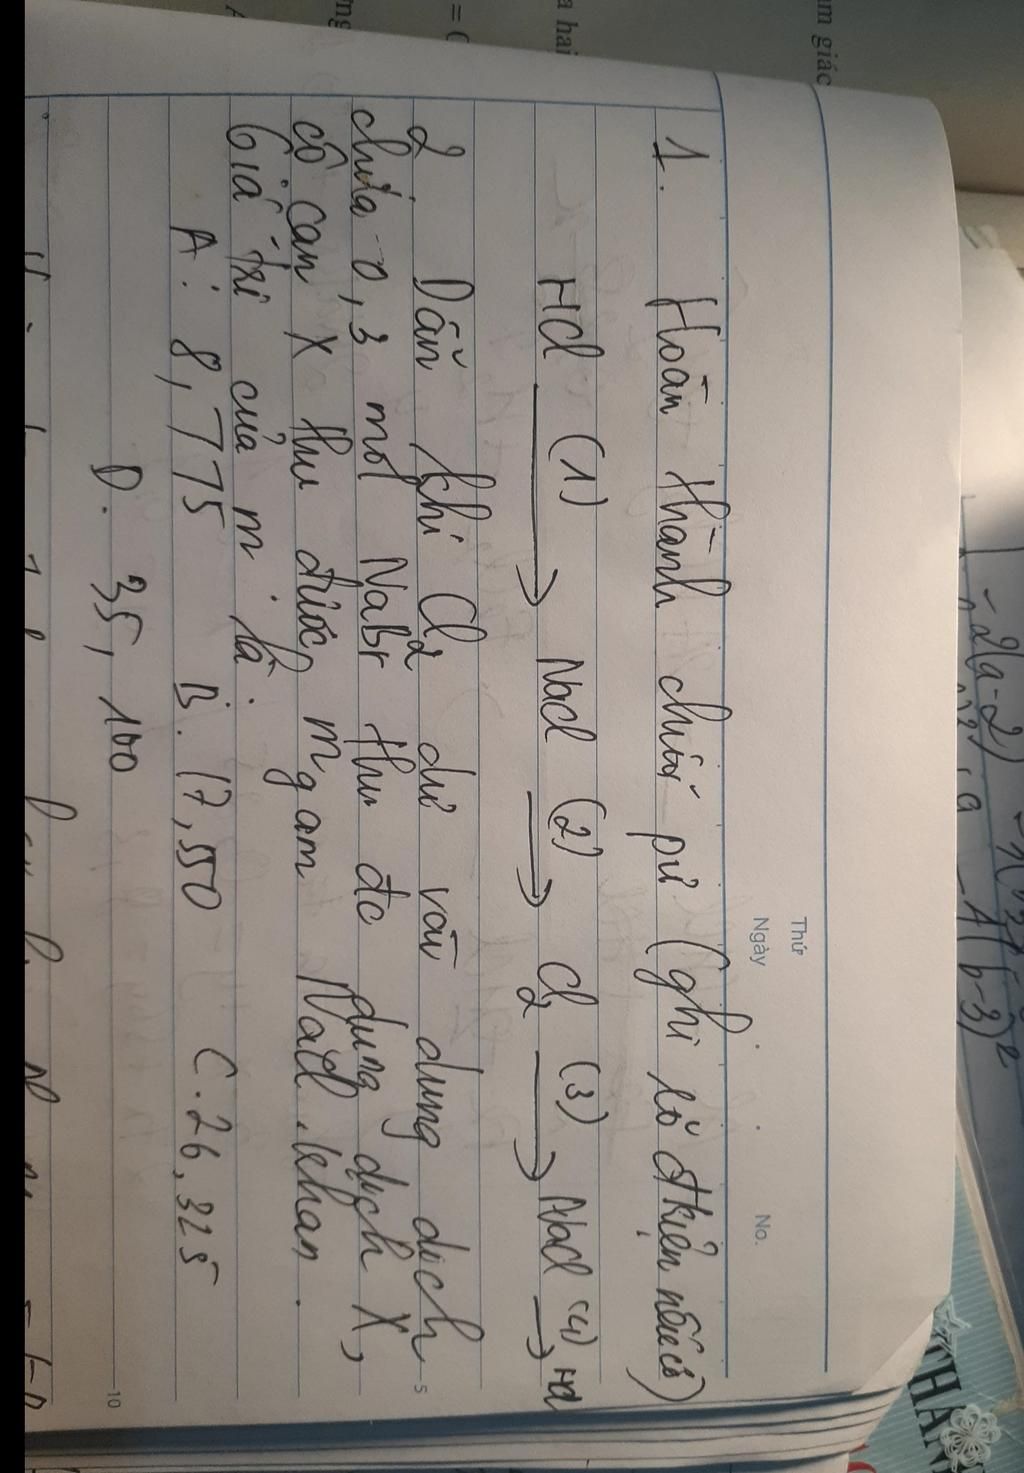 Thứ
Ngày
No.
1. Hoàn thành chuỗi pứ (ghi rõ đkiện nếu có)
HCl (1) → NaCl (2) → Cl2 (3) → NaCl (4) → HCl
2. Dẫn khí Cl2 dư vào dung dịch
chứa 0,3 mol NaBr thu đc dung dịch X,
cô cạn X thu được m gam NaCl khan.
Giá trị của m là:
A. 8,775 B. 17,550 C. 26,325
D. 35,100
5
10
- 2(a-2)
- 4(b-3)²
a hai
am giác
THAN